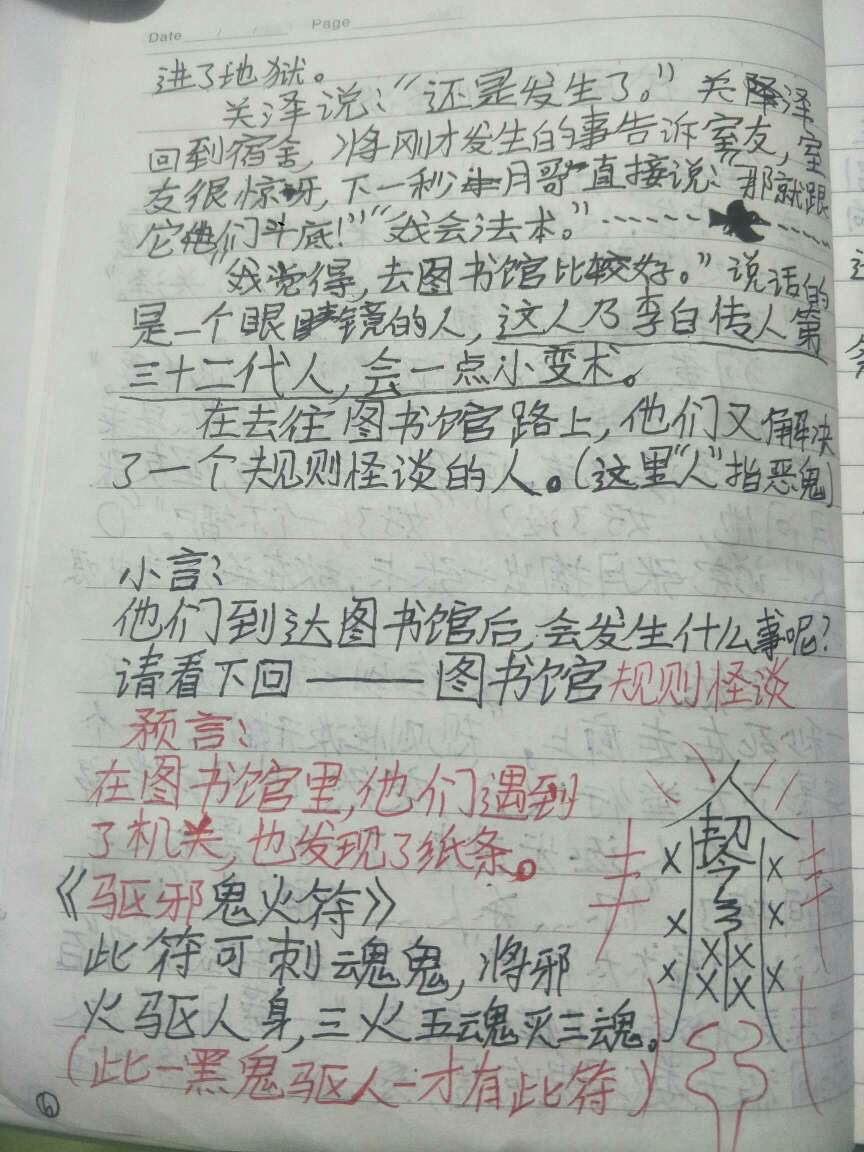 Date / / Page
进了地狱。
关泽说:“还是发生了。”关泽
回到宿舍,将刚才发生的事告诉室友,室
友很惊讶,下一秒 月哥直接说:“那就跟
它们斗底!”“我会法本。”
“我觉得,去图书馆比较好。”说话的
是一个眼镜的人,这人乃李白传人第
三十二代人,会一点小变术。
在去往图书官路上,他们又解决
了一个规则怪谈的人。(这里“人”指恶鬼)
小言:
他们到达图书馆后,会发生什么事呢?
请看下回——图书馆规则怪谈
预言:
在图书馆里,他们遇到
了机关,也发现了纸条。
《驱邪鬼火符》
此符可刺魂鬼,将邪
火驱人身,三火五魂灭三魂。
(此一黑鬼驱人一才有此符)
⑥